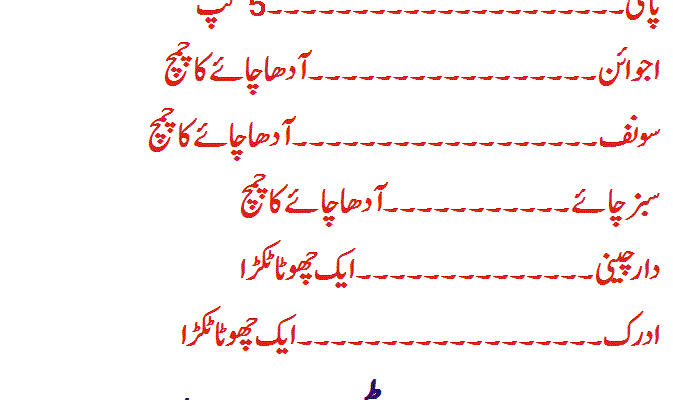 پانی۔۔۔۔۔۔۔۔۔۔۔۔۔۔۔۔۔۔۔۔۔5 کپ
اجوائن۔۔۔۔۔۔۔۔۔۔۔۔۔۔۔۔۔آدھا چائے کا چمچ
سونف۔۔۔۔۔۔۔۔۔۔۔۔۔۔۔۔۔۔آدھا چائے کا چمچ
سبز چائے۔۔۔۔۔۔۔۔۔۔۔۔۔آدھا چائے کا چمچ
دارچینی۔۔۔۔۔۔۔۔۔۔۔۔۔۔ایک چھوٹا ٹکڑا
ادرک۔۔۔۔۔۔۔۔۔۔۔۔۔۔۔۔۔۔ایک چھوٹا ٹکڑا